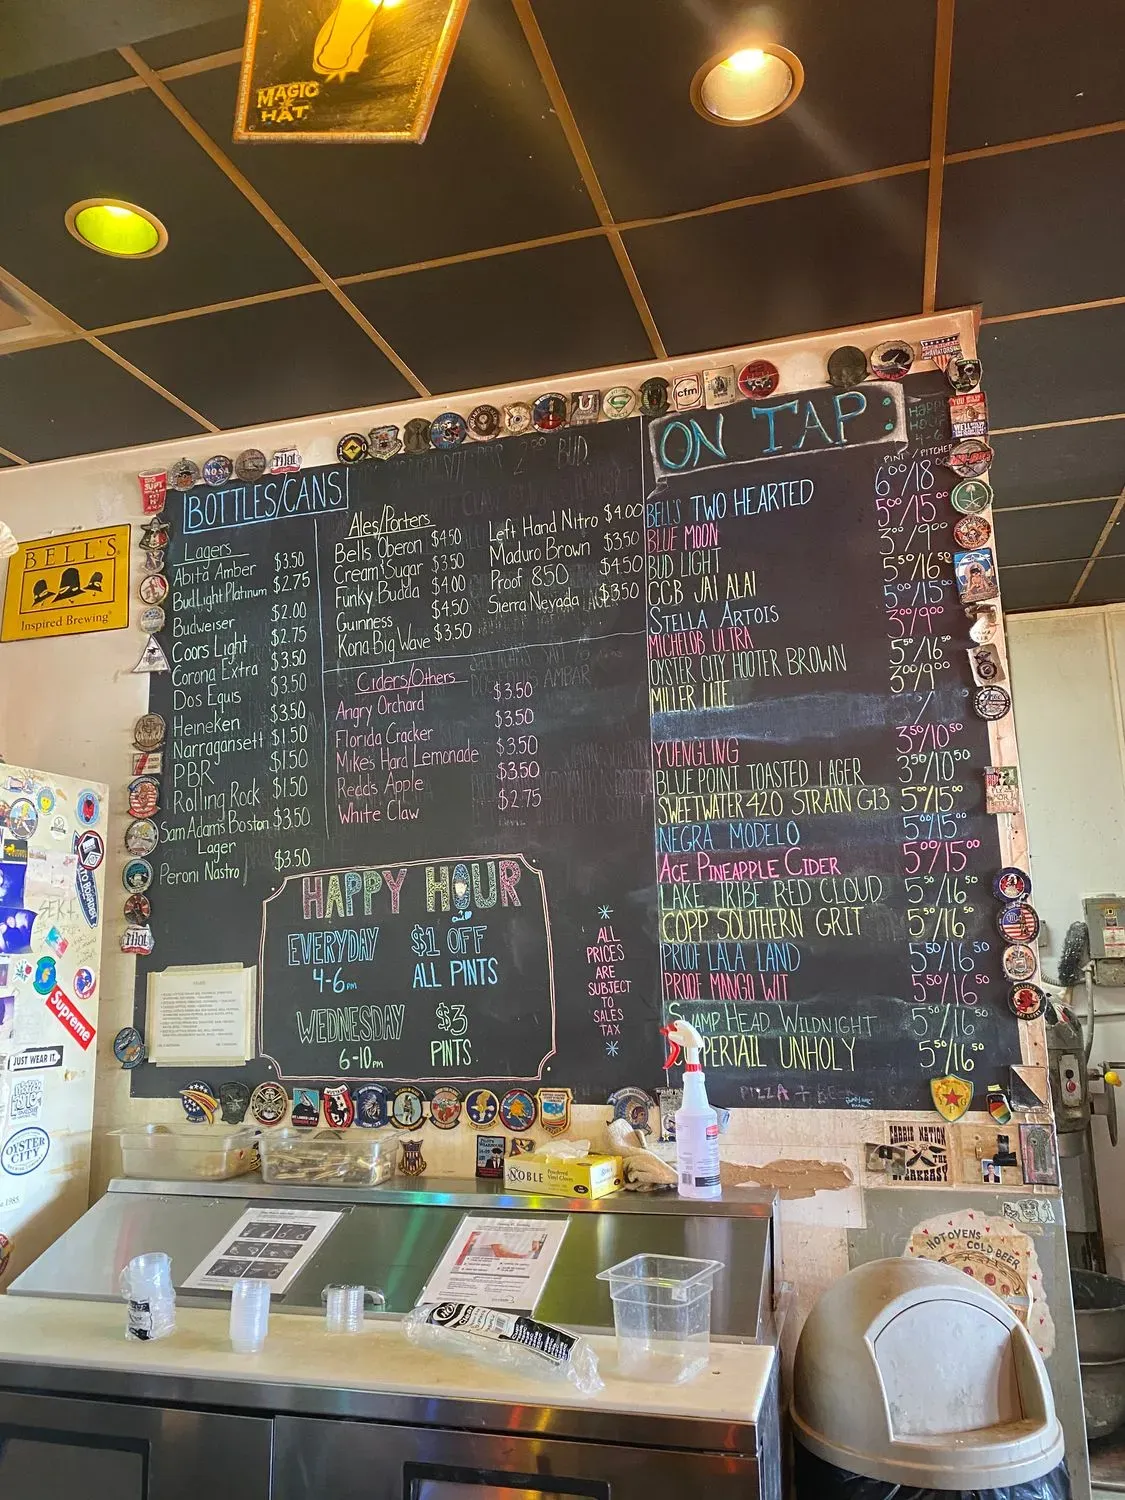 MAGIC
HAT
BELL'S
Inspired Brewing
BOTTLES/CANS
Lagers
Abita Amber $3.50
Bud Light Platinum $2.75
Budweiser $2.00
Coors Light $2.75
Corona Extra $3.50
Dos Equis $3.50
Heineken $3.50
Narragansett $1.50
PBR $1.50
Rolling Rock $1.50
Sam Adams Boston $3.50
Lager
Peroni Nastro $3.50
Ales/Porters
Bells Oberon $4.50
Cream Sugar $3.50
Funky Budda $4.00
Guinness $4.50
Kona Big Wave $3.50
Left Hand Nitro $4.00
Maduro Brown $3.50
Proof 850 $4.50
Sierra Nevada $3.50
Ciders/Others
Angry Orchard $3.50
Florida Cracker $3.50
Mike's Hard Lemonade $3.50
Redd's Apple $3.50
White Claw $2.75
HAPPY HOUR
EVERYDAY $1 OFF
4-6pm ALL PINTS
WEDNESDAY $3
6-10pm PINTS
ALL
PRICES
ARE
SUBJECT
TO
SALES
TAX
ON TAP
PINT / PITCHER
BELL'S TWO HEARTED 6.00/18.00
BLUE MOON 5.00/15.00
BUD LIGHT 3.00/9.00
CCB JAI ALAI 5.50/16.50
STELLA ARTOIS 5.00/15.00
MICHELOB ULTRA 3.00/9.00
OYSTER CITY HOOTER BROWN 5.50/16.50
MILLER LITE 3.00/9.00
YUENGLING 3.50/10.50
BLUE POINT TOASTED LAGER 3.50/10.50
SWEETWATER 420 STRAIN G13 5.00/15.00
NEGRA MODELO 5.00/15.00
ACE PINEAPPLE CIDER 5.00/15.00
LAKE TRIBE RED CLOUD 5.50/16.50
COPP SOUTHERN GRIT 5.50/16.50
PROOF LALA LAND 5.50/16.50
PROOF MANGO WIT 5.50/16.50
SWAMP HEAD WILDNIGHT 5.50/16.50
PERTAIL UNHOLY 5.50/16.50
PIZZA +
Supreme
JUST WEAR IT.
OYSTER
CITY
NASA
cfm
NOBLE
Powdered
Vinyl Gloves
CARRIE NATION
THE
SPEAKEASY
HOT OVENS
COLD BEER